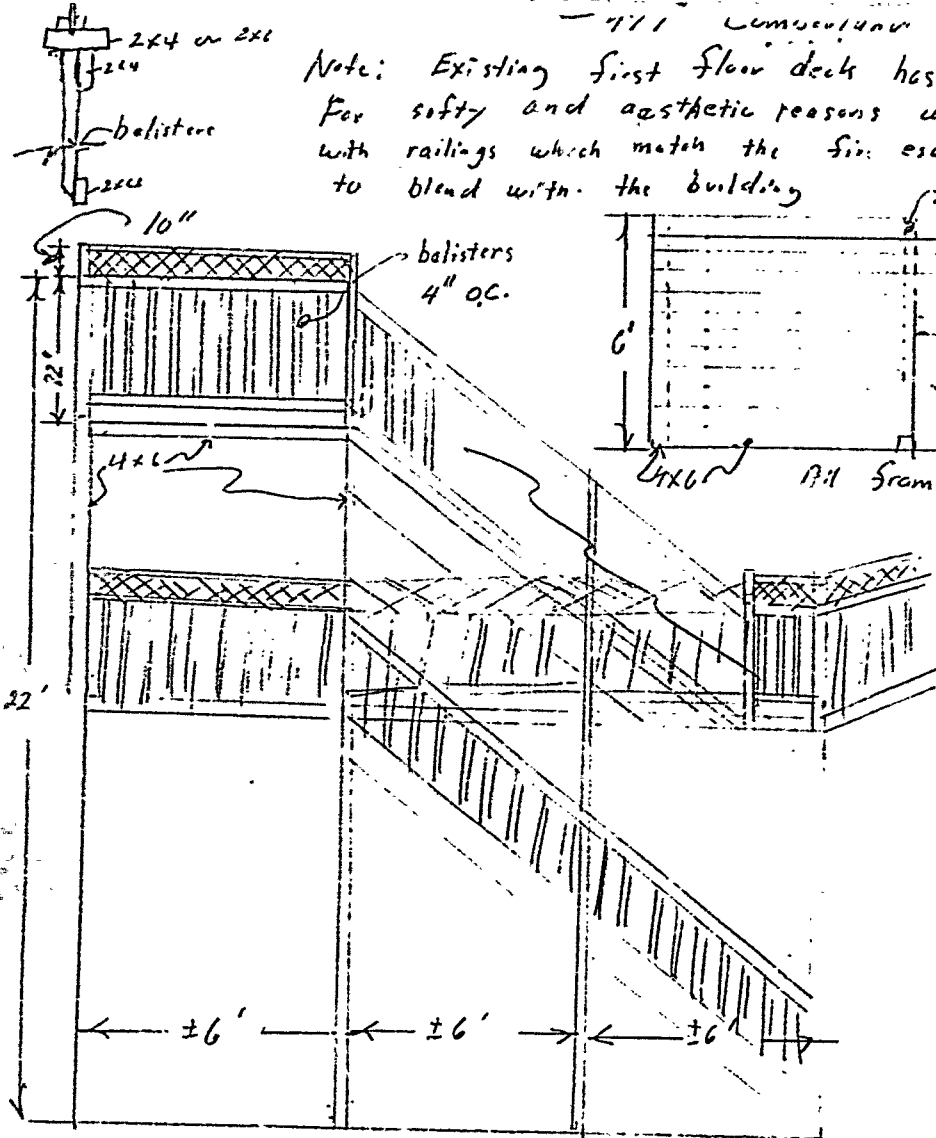 2x4 or 2x6
2x4
balisters
2x4
Note: Existing first floor deck has
For softy and aesthetic reasons
with railings which match the fire
to blend with the building
10"
balisters
4" O.C.
22"
6'
4x6
4x6
All fram
22'
±6'
±6'
±6'